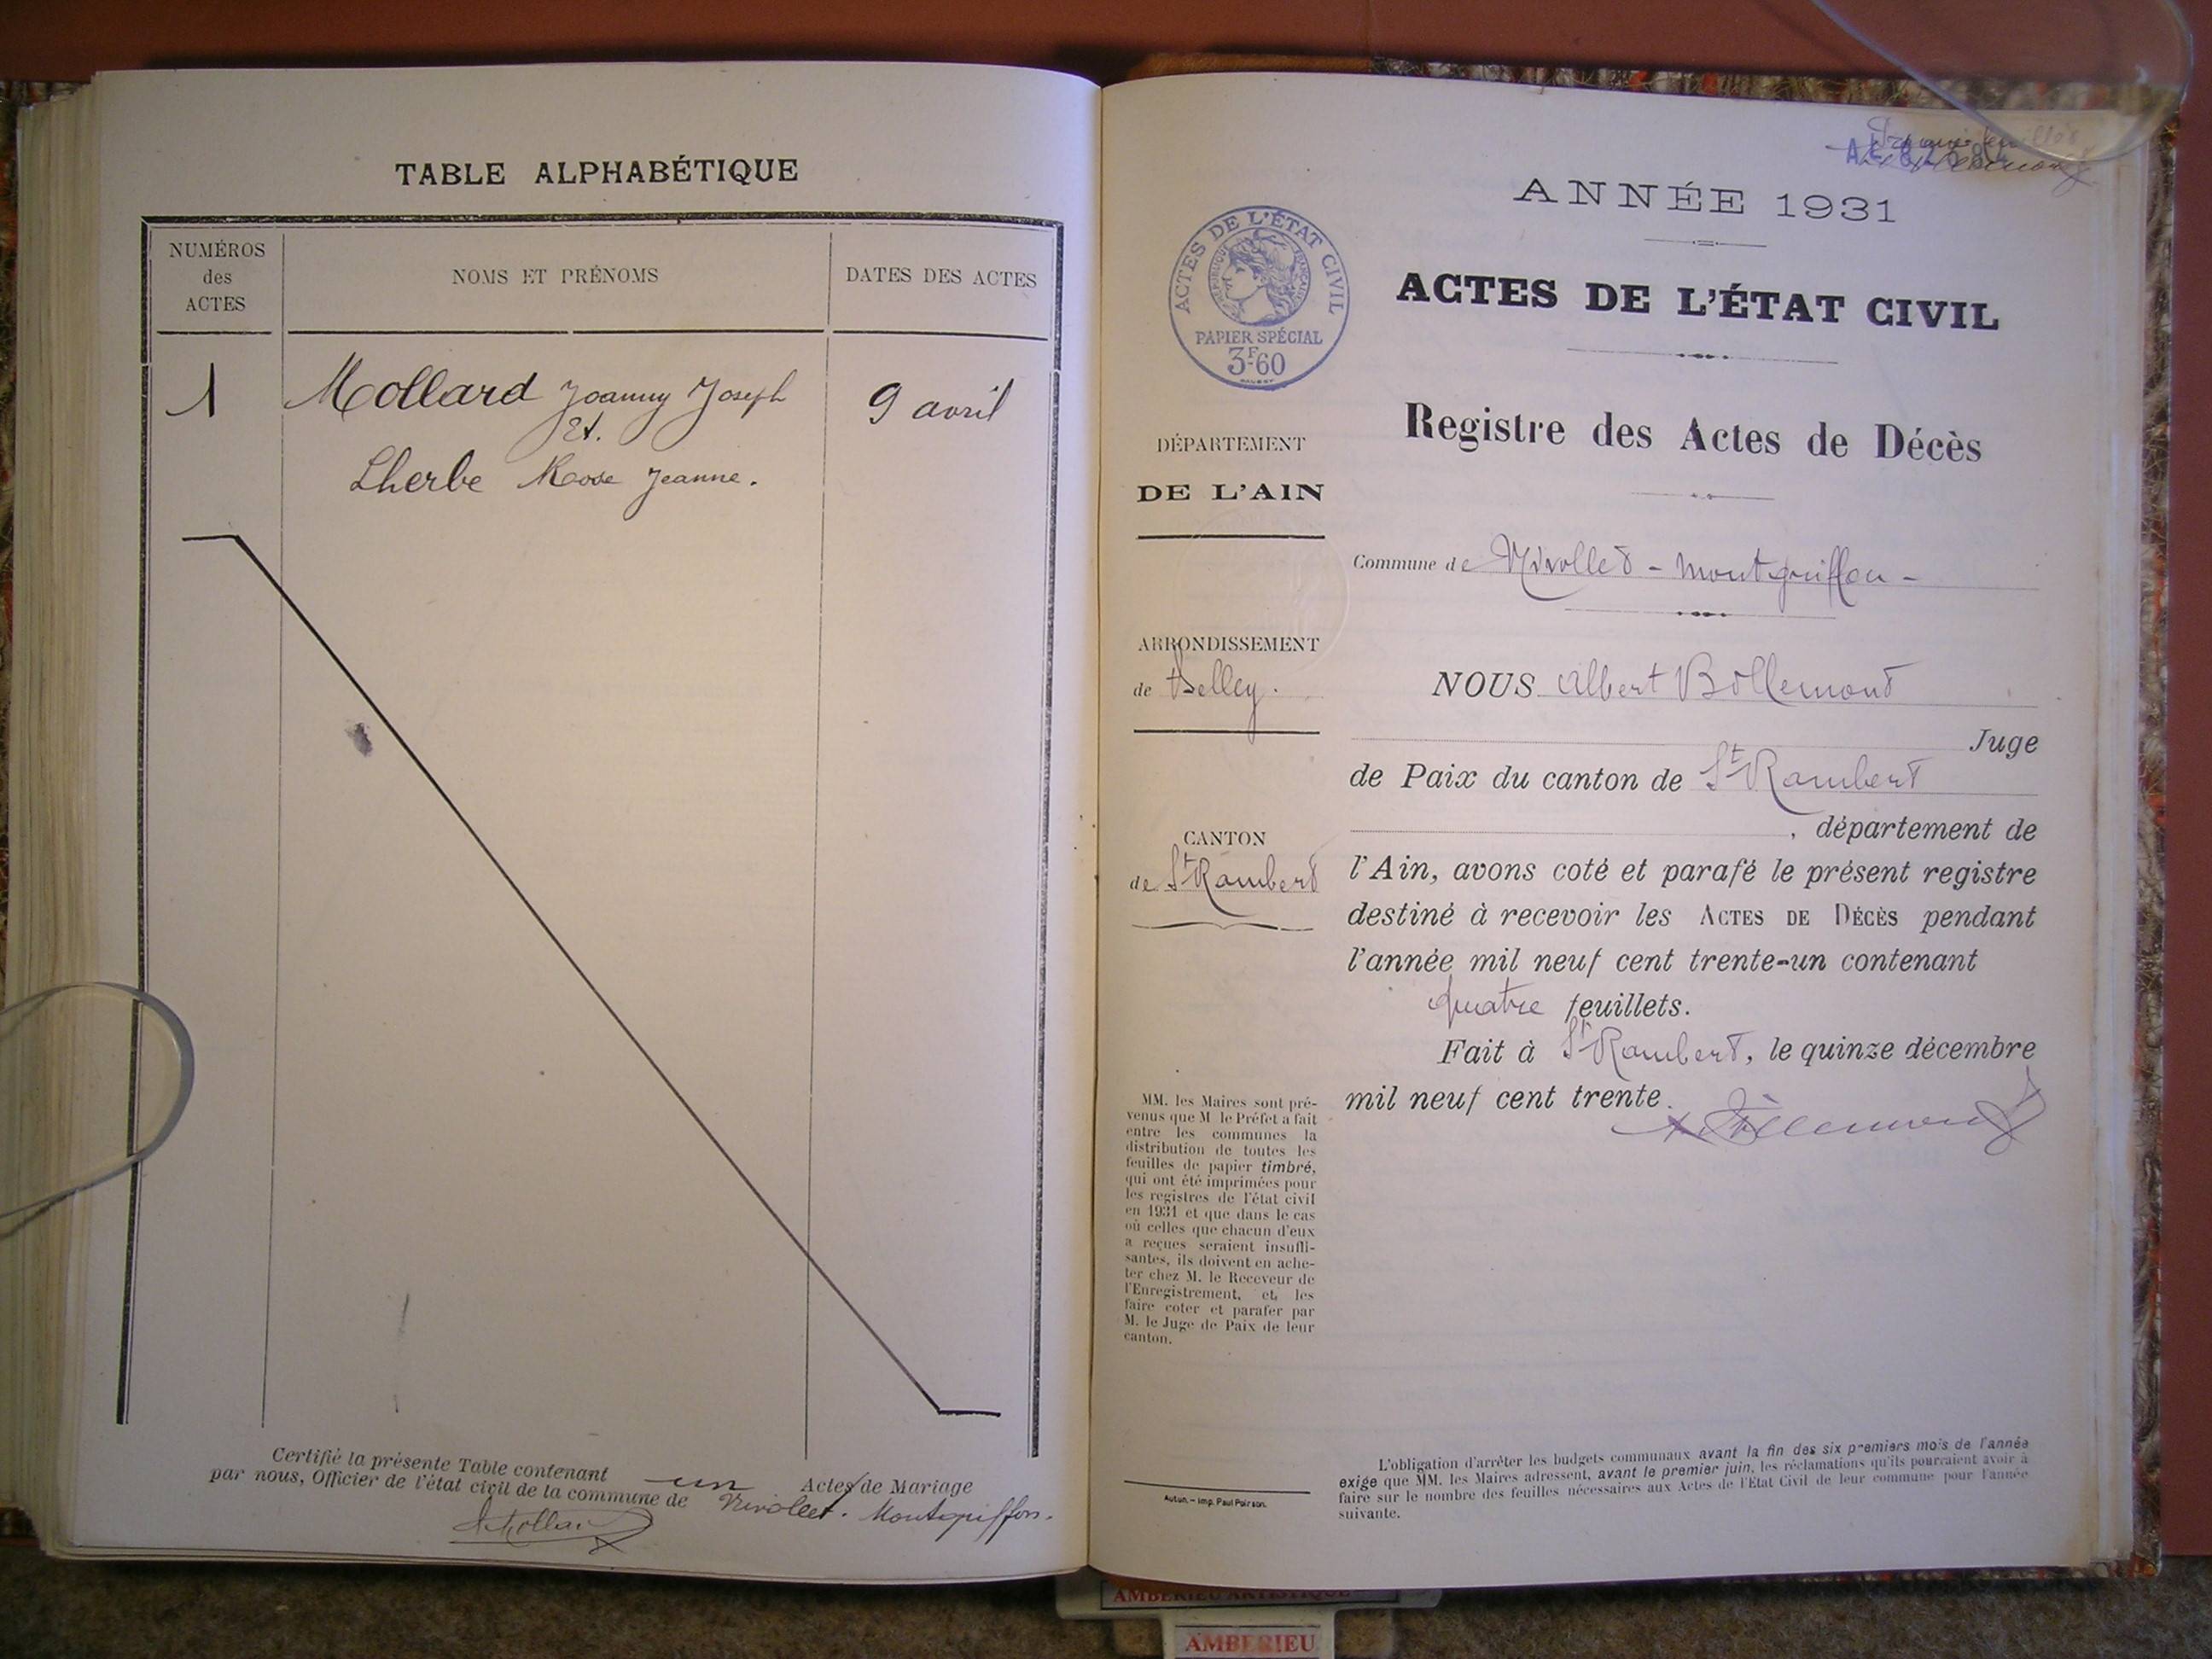 TABLE ALPHABÉTIQUE
NUMÉROS
des
ACTES
NOMS ET PRÉNOMS
DATES DES ACTES
1 Mollard Joanny Joseph 9 avril
Et.
Lherbe Rose Jeanne.
Certifié la présente Table contenant un Actes de Mariage
par nous, Officier de l'état civil de la commune de Nivollet. Montgriffon.
Mollard
ANNÉE 1931
ACTES DE L'ÉTAT CIVIL
RÉPUBLIQUE FRANÇAISE
PAPIER SPÉCIAL
3F60
ACTES DE L'ÉTAT CIVIL
Registre des Actes de Décès
DÉPARTEMENT
DE L'AIN
Commune de Nivollet - Montgriffon -
ARRONDISSEMENT
de Belley.
CANTON
de St Rambert
NOUS Albert Bollemont
Juge
de Paix du canton de St Rambert
, département de
l'Ain, avons coté et parafé le présent registre
destiné à recevoir les ACTES DE DÉCÈS pendant
l'année mil neuf cent trente-un contenant
quatre feuillets.
Fait à St Rambert, le quinze décembre
mil neuf cent trente.
MM. les Maires sont pré-
venus que M le Préfet a fait
entre les communes la
distribution de toutes les
feuilles de papier timbré,
qui ont été imprimées pour
les registres de l'état civil
en 1931 et que dans le cas
où celles que chacun d'eux
a reçues seraient insuffi-
santes, ils doivent en ache-
ter chez M. le Receveur de
l'Enregistrement, et, les
faire coter et parafer par
M. le Juge de Paix de leur
canton.
Autun. - Imp. Paul Poirson.
L'obligation d'arrêter les budgets communaux avant la fin des six premiers mois de l'année
exige que MM. les Maires adressent, avant le premier juin, les réclamations qu'ils pourraient avoir à
faire sur le nombre des feuilles nécessaires aux Actes de l'État Civil de leur commune pour l'année
suivante.
AMBERIEU ARTISTIQUE
AMBERIEU